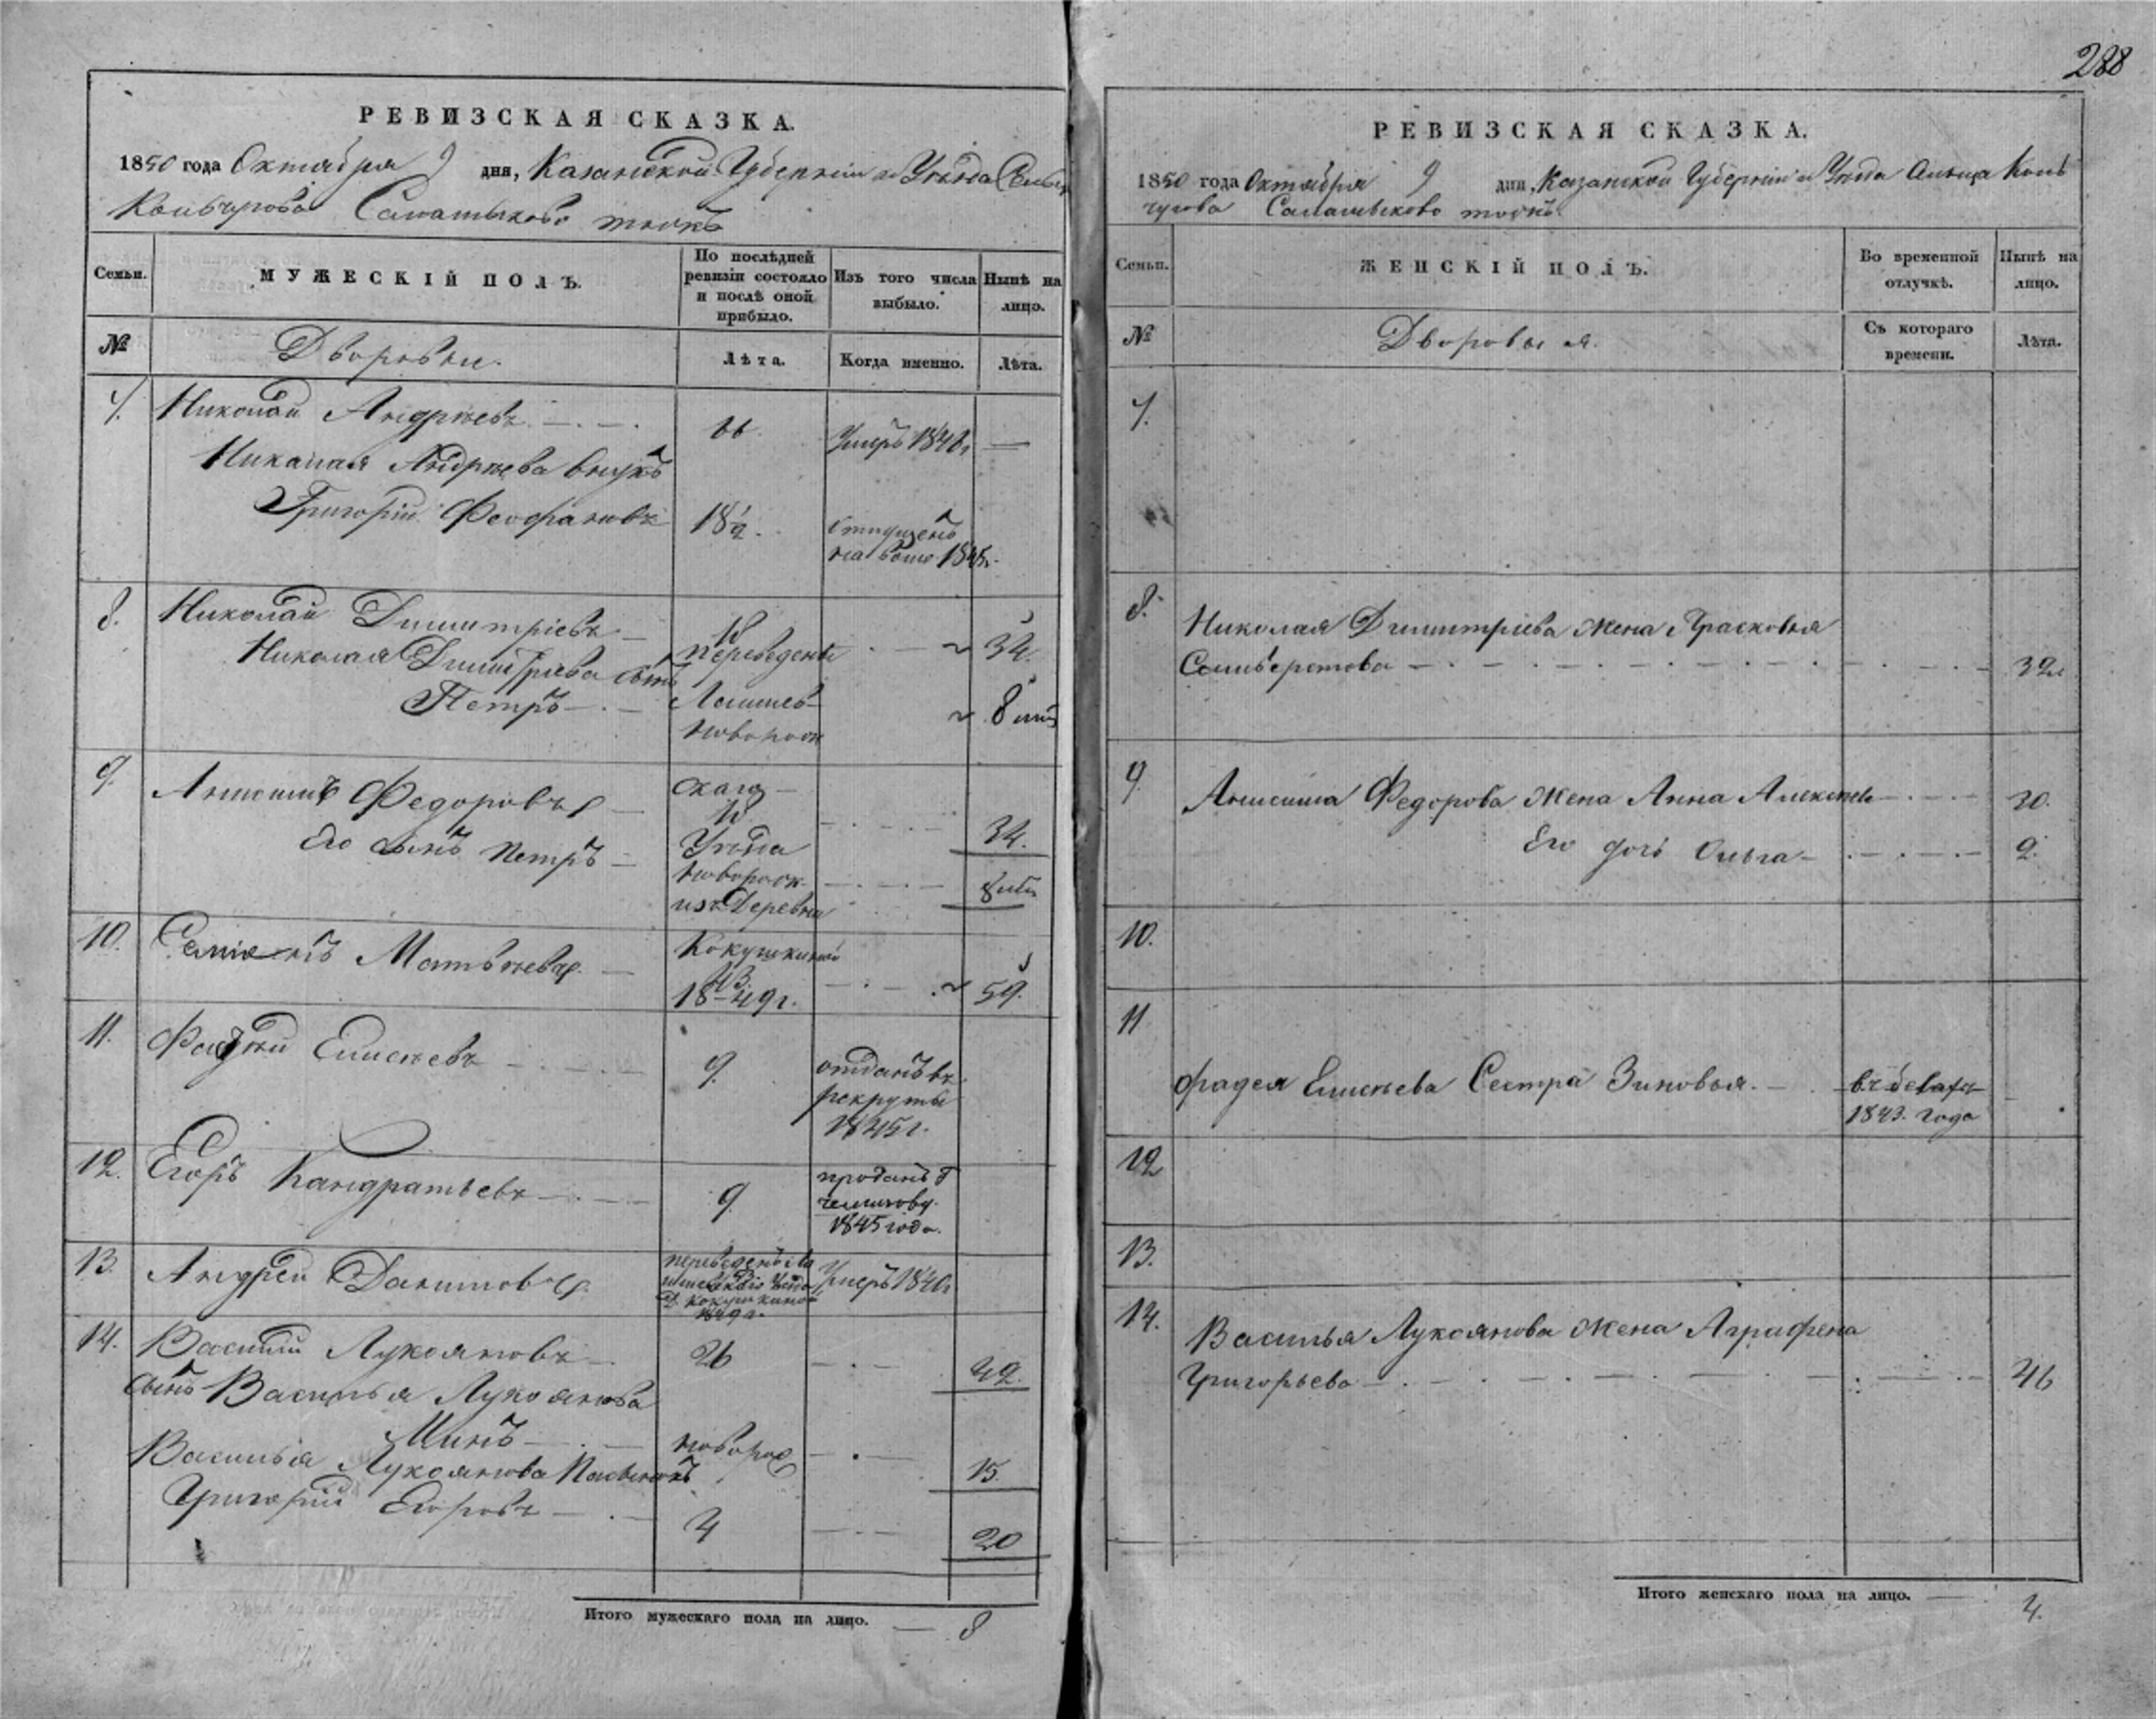 288
РЕВИЗСКАЯ СКАЗКА.
1850 года Октября 9 дня, Казанской Губерніи и Уѣзда Сельца
Кульчугова
Семьи.
МУЖЕСКІЙ ПОЛЪ.
По послѣдней ревизіи состояло и послѣ оной прибыло.
Изъ того числа выбыло.
Нынѣ на лицо.
№
Дворовыи.
Лѣта.
Когда именно.
Лѣта.
7. Николай Андрѣевъ 66 Умеръ 1846г —
Николая Андрѣева внукъ
Григорій Феофановъ 18½. отпущенъ
на волю 1845г.
8. Николай Димитріевъ 34.
переведенъ
Николая Димитріева сынъ
Петръ 8 лѣтъ
новорож
9. Анисимъ Федоровъ 34.
Уѣзда
Его сынъ Петръ новорож. 8 лѣт
изъ Деревни
10. Семіонъ Матвѣевъ. Кокушкиной
1849г. 59.
11. Фадѣй Елисѣевъ 9. отданъ въ
рекруты
1845г.
12. Егоръ Кандратьевъ 9 проданъ Г
1845 года.
13. Андрей Даниловъ. переведенъ
Умеръ 1840г
Д. Кокушкиной
1849г.
14. Василій Лукояновъ 26 42.
сынъ Василья Лукоянова
Минъ новорож 15.
Василія Лукоянова Пасынокъ
Григорій Егоровъ 4 20
Итого мужескаго пола на лицо. — 8
РЕВИЗСКАЯ СКАЗКА.
1850 года Октября 9 дня, Казанской Губерніи и Уѣзда Сельца Куль
чугова
Семьи.
ЖЕНСКІЙ ПОЛЪ.
Во временной отлучкѣ.
Нынѣ на лицо.
№
Дворовыя.
Съ котораго времени.
Лѣта.
7.
8. Николая Димитріева жена Прасковья
Селиверстова 32
9. Анисима Федорова жена Анна Алексѣев 30.
Его дочь Ольга 2.
10.
11
Фадея Елисѣева Сестра Зиновья. въ бѣгахъ
1843. года
12
13.
14. Василья Лукоянова жена Аграфена
Григорьева 46
Итого женскаго пола на лицо. — 4.